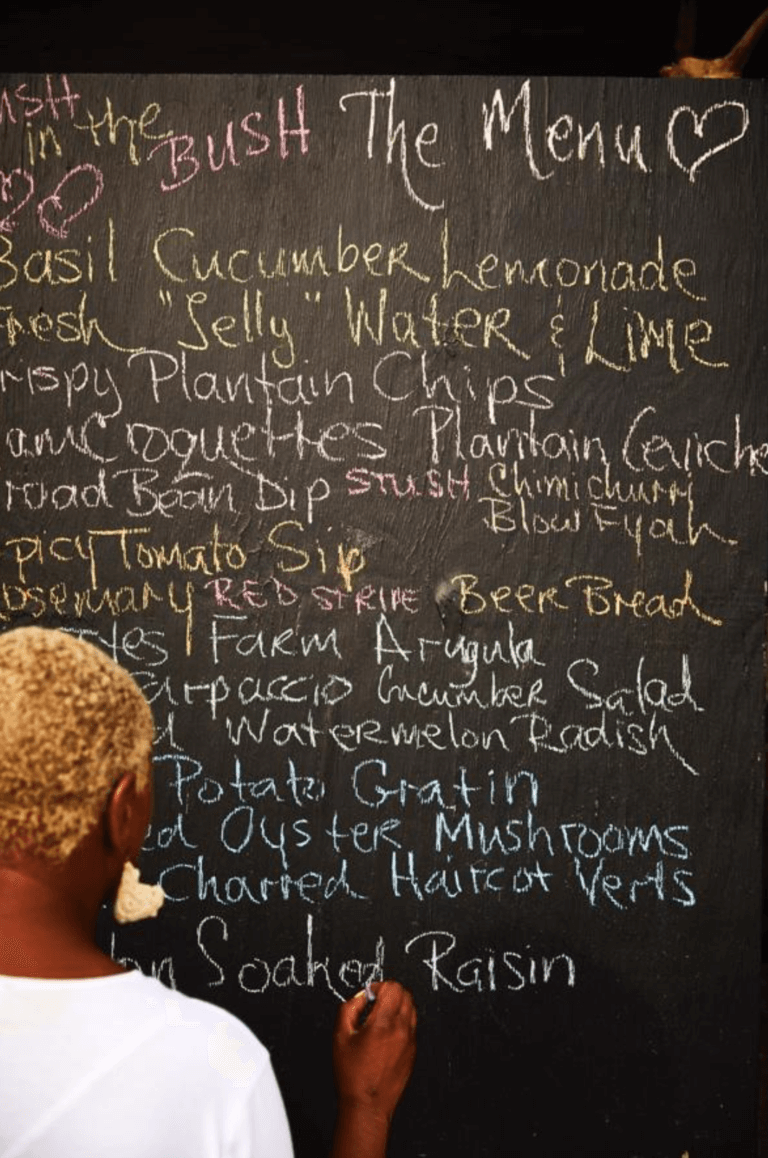 in the BUSH The Menu
Basil Cucumber Lemonade
Fresh "Jelly" Water & Lime
rispy Plantain Chips
Croquettes Plantain
road Bean Dip STUSH Chimichurri
Blow Fyah
picy Tomato Sip
osemary RED STRIPE Beer Bread
Farm Arugula
arpaccio Cucumber Salad
Watermelon Radish
Potato Gratin
ed Oyster Mushrooms
Charred Haircot Verts
Soaked Raisin